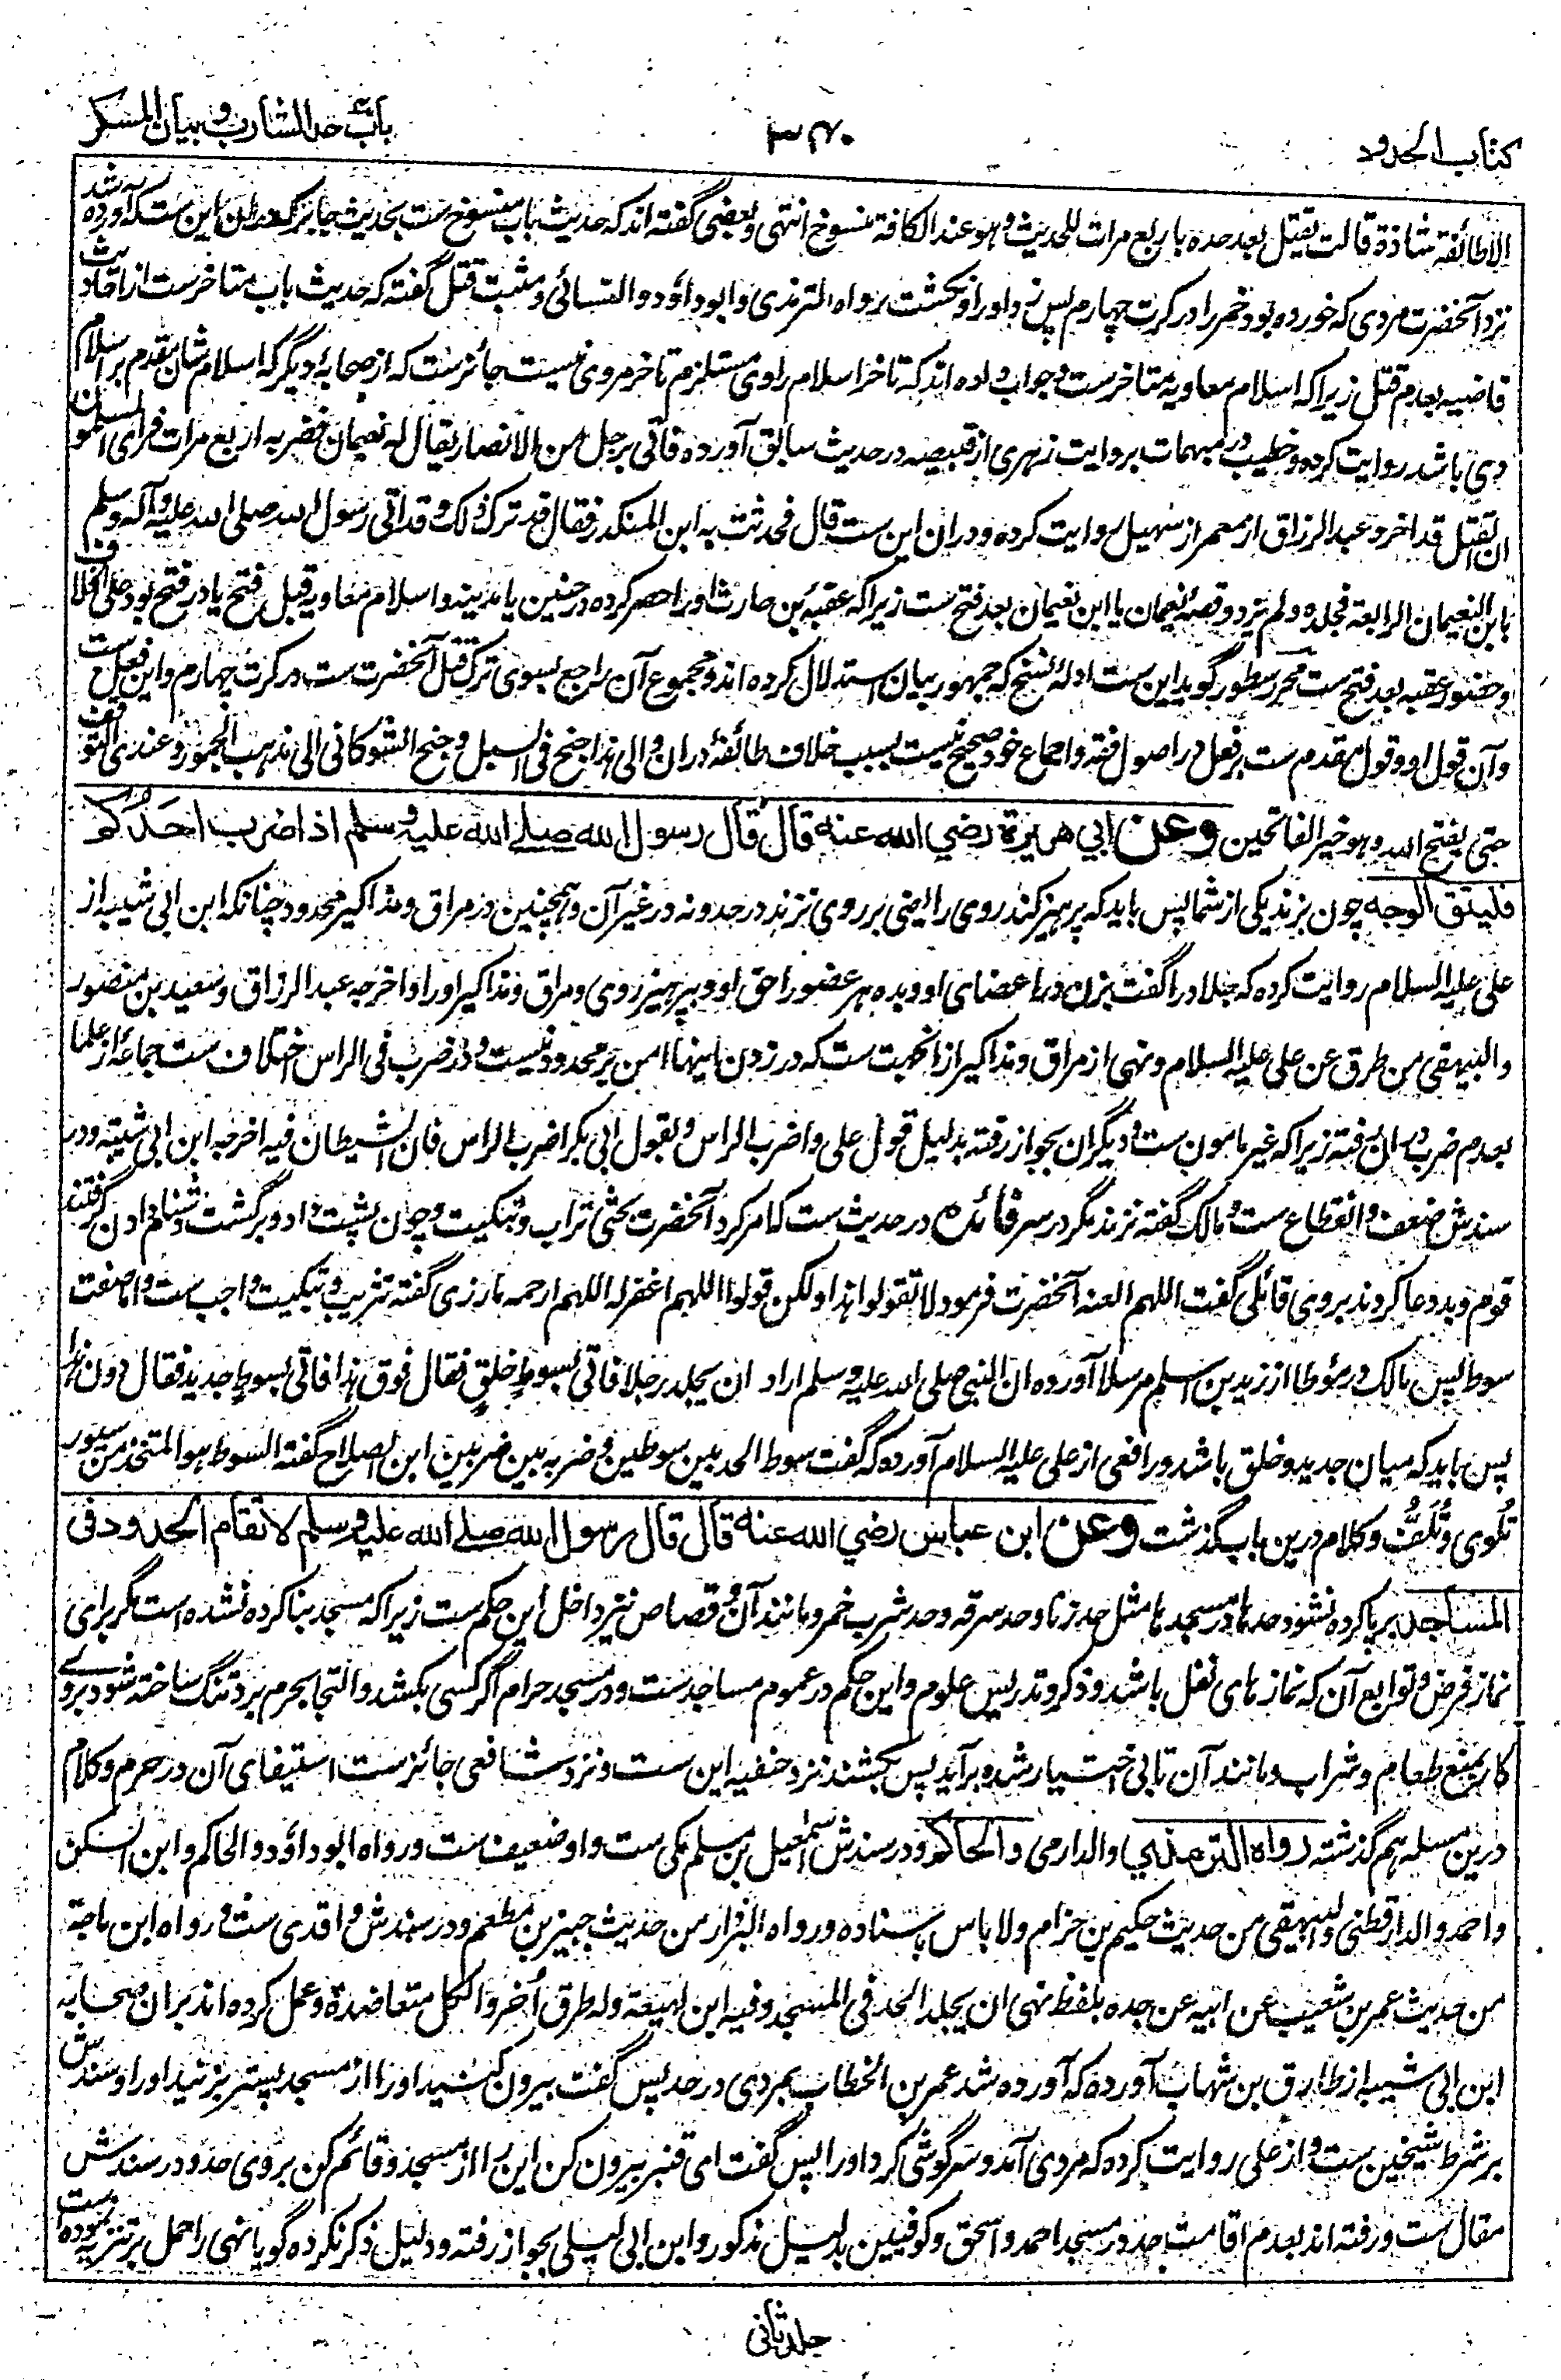 کتاب الحدود
۳۴۰
باب حد الشارب و بیان المسکر
الا طائفة شاذة قالت یقتل بعد حده باربع مرات للحدیث و هو عند الکافة منسوخ انتهی و بعضی گفته اند که حدیث باب منسوخ ست بحدیث جابر که دران این ست که آورده شد
نزد آنحضرت مردی که خورده بود خمر را در کرت چهارم پس زد او را و نکشت رواه الترمذی و ابوداؤد و النسائی و مثبت قتل گفته که حدیث باب متاخرست از احادیث
قاضیه بعدم قتل زیرا که اسلام معاویه متاخرست و جواب داده اند که تاخر اسلام راوی مستلزم تاخر مروی نیست جائزست که از صحابۀ دیگر که اسلام شان مقدم بر اسلام
وی باشد روایت کرده و خطیب در مبهمات بروایت زهری از قبیصه در حدیث سابق آورده فاتی برجل من الانصار یقال له نعیمان فضربه اربع مرات فرای المسلمون
ان القتل قد اخر و عبد الرزاق از معمر از سهیل روایت کرده و دران این ست قال فحدثت به ابن المنکدر فقال قد ترک ذلک و قد اتی رسول الله صلی الله علیه و آله وسلم
بابن النعیمان الرابعة فجلده و لم یزد و قصۀ نعیمان یا ابن نعیمان بعد فتح ست زیرا که عقبة بن حارث او را حصر کرده در حنین یا مدینه و اسلام معاویه قبل فتح یا در فتح بود علی الخلاف
و حضور عقبه بعد فتح ست محرر سطور گوید این ست ادلۀ نسخ که جمهور بیان استدلال کرده اند و مجموع آن راجع بسوی ترک قتل آنحضرت ست در کرت چهارم و این فعل ست
و آن قول او و قول مقدم ست بر فعل در اصول فقه و اجماع خود صحیح نیست بسبب خلاف طائفۀ دران و الی هذا جنح فی السبل و جنح الشوکانی الی مذهب الجمهور و عندی التوقف
حتی یفتح الله و هو خیر الفاتحین وعن ابي هريرة رضي الله عنه قال قال رسول الله صلى الله عليه وسلم اذا ضرب احدكم
فليتق الوجه چون بزند یکی از شما پس باید که پرهیز کند روی را یعنی بر روی نزند در حد و نه در غیر آن و همچنین در مراق و مذاکیر محدود چنانکه ابن ابی شیبه از
علی علیه السلام روایت کرده که جلاد را گفت بزن در اعضای او و بده هر عضو را حق او و بپرهیز روی و مراق و مذاکیر او را و اخرجه عبد الرزاق و سعید بن منصور
و البیهقی من طرق عن علی علیه السلام و نهی از مراق و مذاکیر ازانجهت ست که در زدن اینها امن بر محدود نیست و در ضرب فی الراس اختلاف ست جماعۀ از علما
بعدم ضرب راس رفته زیرا که غیر مامون ست و دیگران بجواز رفته بدلیل قول علی و اضرب الراس و بقول ابی بکر اضرب الراس فان الشیطان فیه اخرجه ابن ابی شیبة و در
سندش ضعف و انقطاع ست و مالک گفته نزند مگر در سر فائده در حدیث ست کامر کرد آنحضرت بحثی تراب و تبکیت و چون پشت داد و برگشت دشنام دادن گرفتند
قوم و بد دعا کردند بروی قائلی گفت اللهم العنه آنحضرت فرمود لا تقولوا هذا و لکن قولوا اللهم اغفر له اللهم ارحمه مازری گفته تثریب و تبکیت واجب ست و اما صفت
سوط پس مالک در موطا از زید بن اسلم مرسلا آورده ان النبی صلی الله علیه وسلم اراد ان یجلد رجلا فاتی بسوط خلق فقال فوق هذا فاتی بسوط جدید فقال دون هذا
پس باید که میان جدید و خلق باشد و رافعی از علی علیه السلام آورده که گفت سوط الحد بین سوطین و ضربه بین ضربین ابن الصلاح گفته السوط هو المتخذ من سیور
تُلوی و تُلَفُّ و کلام درین باب گذشت وعن ابن عباس رضي الله عنه قال قال رسول الله صلى الله عليه وسلم لا تقام الحدود في
المساجد برپا کرده نشود حدها در مسجدها مثل حد زنا و حد سرقه و حد شرب خمر و مانند آن و قصاص نیز داخل این حکم ست زیرا که مسجد بنا کرده نشده است مگر برای
نماز فرض و توابع آن که نمازهای نفل باشد و ذکر و تدریس علوم و این حکم در عموم مساجدست و در مسجد حرام اگر کسی بکشد و التجا بحرم برد تنگ ساخته شود بروی
کار بمنع طعام و شراب و مانند آن تا بی اختیار شده برآید پس بکشند نزد حنفیه این ست و نزد شافعی جائزست استیفای آن در حرم و کلام
درین مسله هم گذشته رواه الترمذي والدارمی والحاكم و در سندش اسمعیل بن مسلم مکی ست و او ضعیف ست و رواه ابوداؤد و الحاکم و ابن السکن
و احمد و الدارقطنی و البیهقی من حدیث حکیم بن حزام و لا باس باسناده و رواه البزار من حدیث جبیر بن مطعم و در سندش واقدی ست و رواه ابن ماجة
من حدیث عمر بن شعیب عن ابیه عن جده بلفظ نهی ان یجلد الحد فی المسجد و فیه ابن لهیعة و له طرق اُخر و الکل متعاضدة و عمل کرده اند بران صحابه
ابن ابی شیبه از طارق بن شهاب آورده که آورده شد عمر بن الخطاب بمردی در حد پس گفت بیرون کنید او را از مسجد پستر بزنید او را و سندش
بر شرط شیخین ست و از علی روایت کرده که مردی آمد و سرگوشی کرد او را پس گفت ای قنبر بیرون کن این را از مسجد و قائم کن بروی حد و در سندش
مقال ست و رفته اند بعدم اقامت حد در مسجد احمد و اسحق و کوفیین بدلیل مذکور و ابن ابی لیلی بجواز رفته و دلیل ذکر نکرده گویا نهی را حمل بر تنزیه نموده ست
جلد ثانی